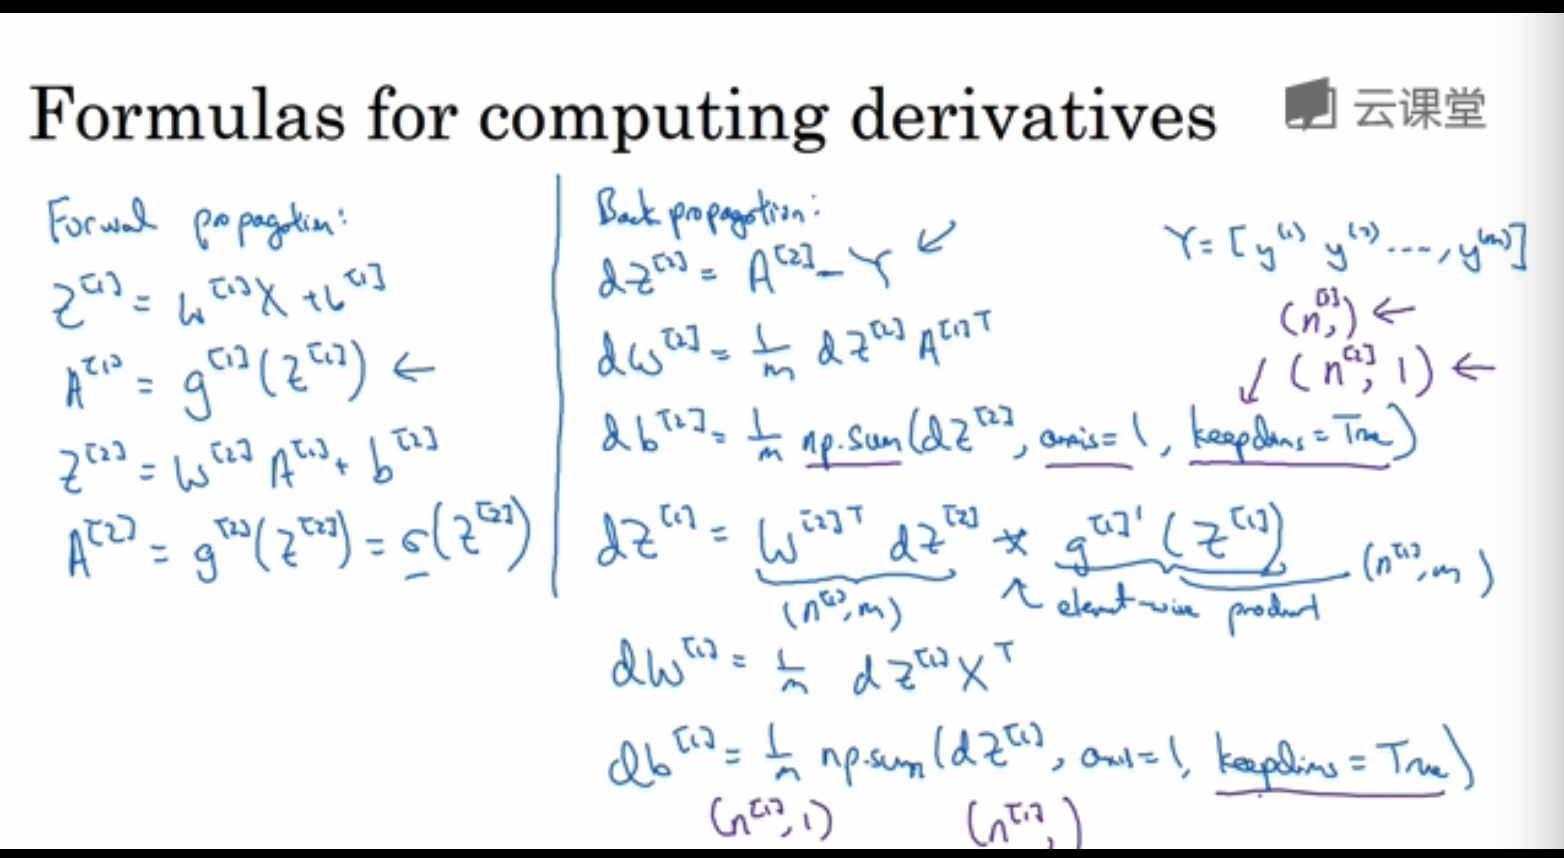 Formulas for computing derivatives
云课堂
Forward propagation:
Z^[1] = W^[1]X + b^[1]
A^[1] = g^[1](Z^[1]) ←
Z^[2] = W^[2] A^[1] + b^[2]
A^[2] = g^[2](Z^[2]) = σ(Z^[2])
Back propagation:
dZ^[2] = A^[2] - Y ↙
Y = [y^(1) y^(2) ..., y^(m)]
dW^[2] = 1/m dZ^[2] A^[1]T
(n^[2],) ←
↙ (n^[2], 1) ←
db^[2] = 1/m np.sum(dZ^[2], axis=1, keepdims=True)
dZ^[1] = W^[2]T dZ^[2] * g^[1]'(Z^[1])
(n^[1], m)
element-wise product
(n^[1], m)
dW^[1] = 1/m dZ^[1] X^T
db^[1] = 1/m np.sum(dZ^[1], axis=1, keepdims=True)
(n^[1], 1) (n^[1],)